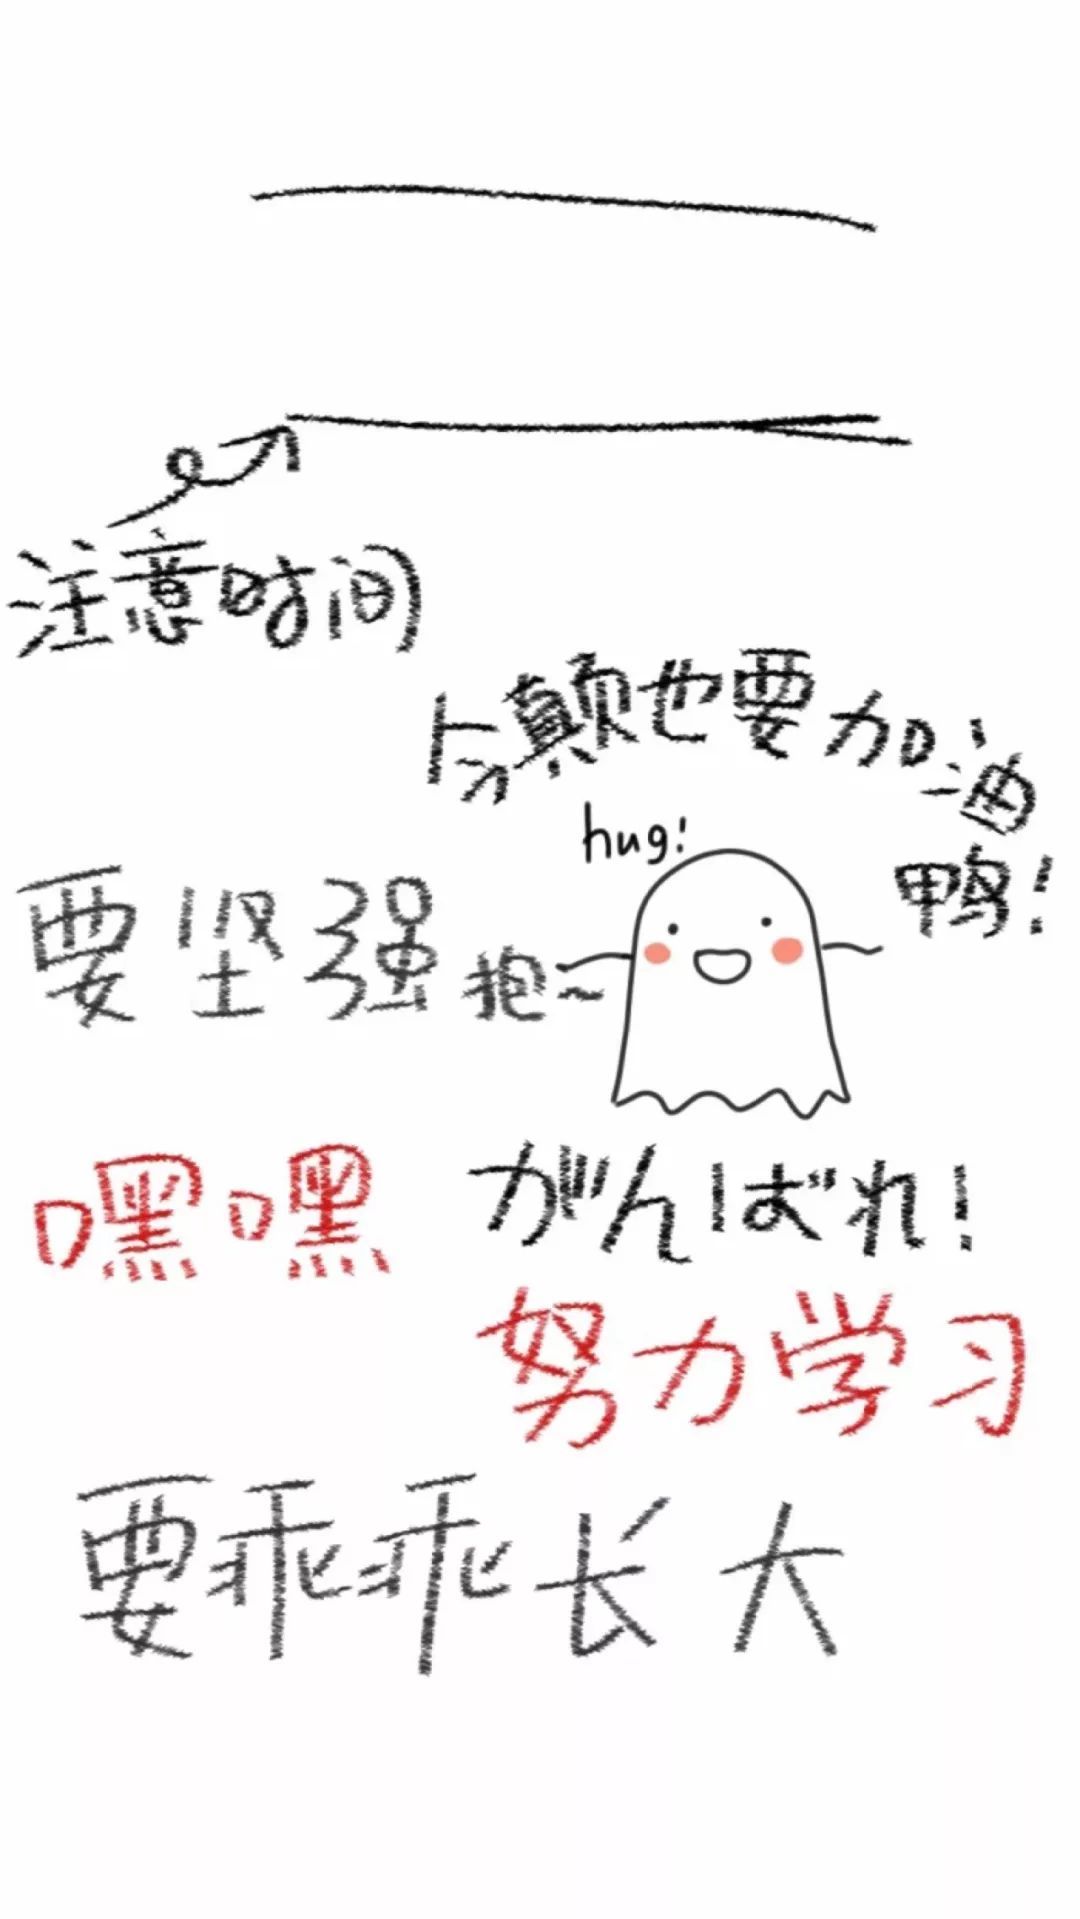 注意时间
卜方颠也要加油
鸭！
hug!
要坚强 抱~
嘿嘿
がんばれ！
努力学习
要乖乖长大